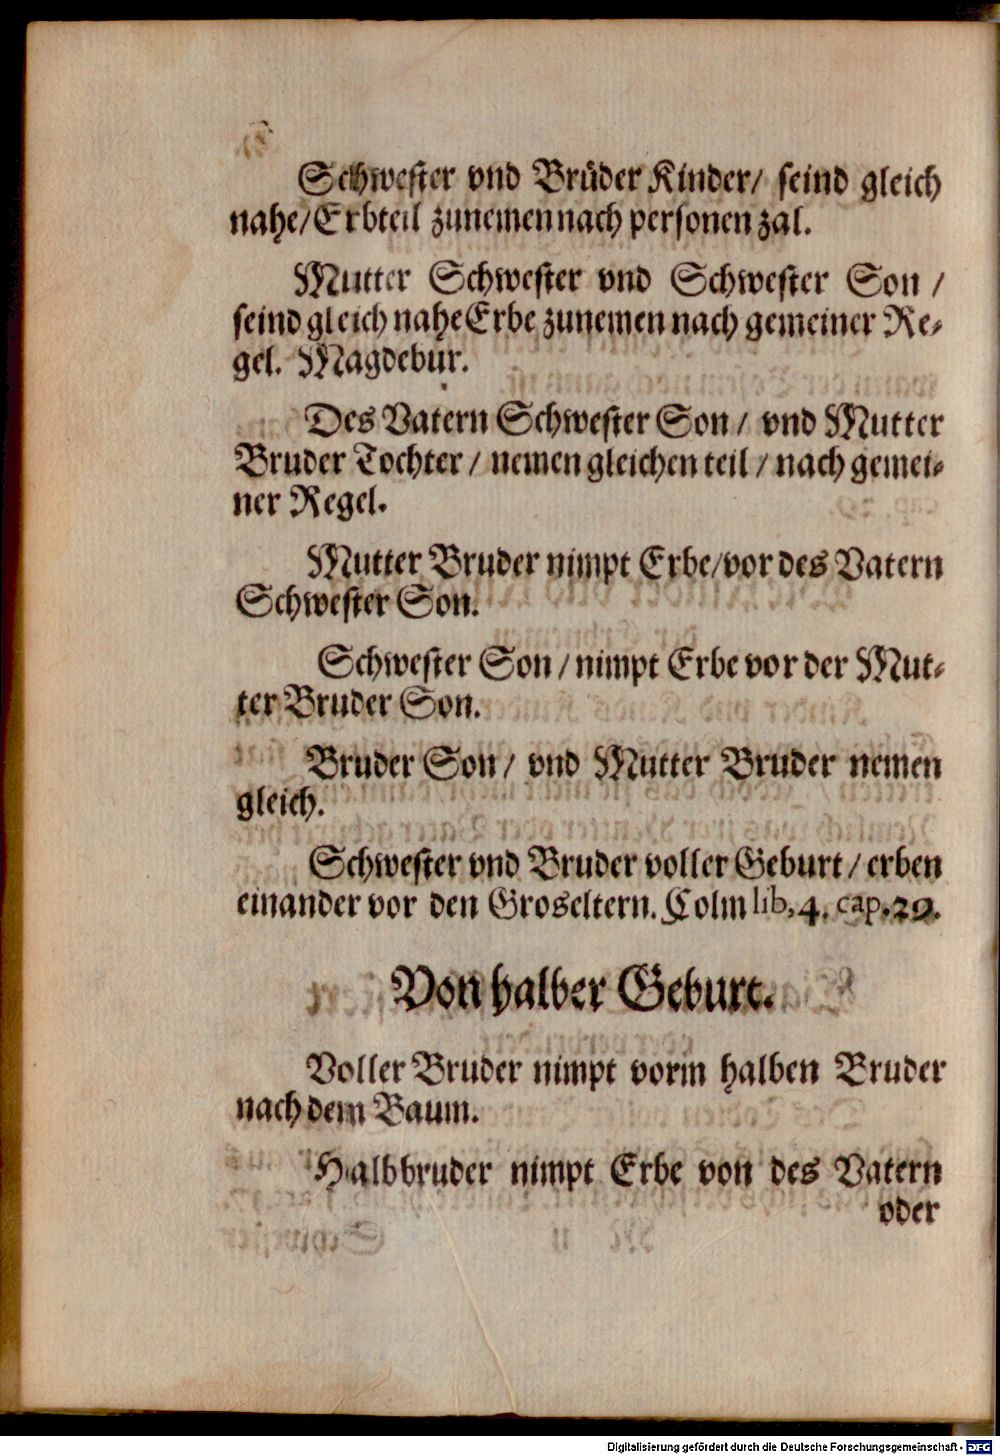 Schwester vnd Brüder Kinder/ seind gleich
nahe/Erbteil zunemen nach personen zal.
Mutter Schwester vnd Schwester Son /
seind gleich nahe Erbe zunemen nach gemeiner Re-
gel. Magdebur.
Des Vatern Schwester Son / vnd Mutter
Bruder Tochter / nemen gleichen teil / nach gemei-
ner Regel.
Mutter Bruder nimpt Erbe/vor des Vatern
Schwester Son.
Schwester Son / nimpt Erbe vor der Mut-
ter Bruder Son.
Bruder Son / vnd Mutter Bruder nemen
gleich.
Schwester vnd Bruder voller Geburt / erben
einander vor den Groseltern. Colm lib. 4. cap. 29.
Von halber Geburt.
Voller Bruder nimpt vorm halben Bruder
nach dem Baum.
Halbbruder nimpt Erbe von des Vatern
oder
Digitalisierung gefördert durch die Deutsche Forschungsgemeinschaft - DFG